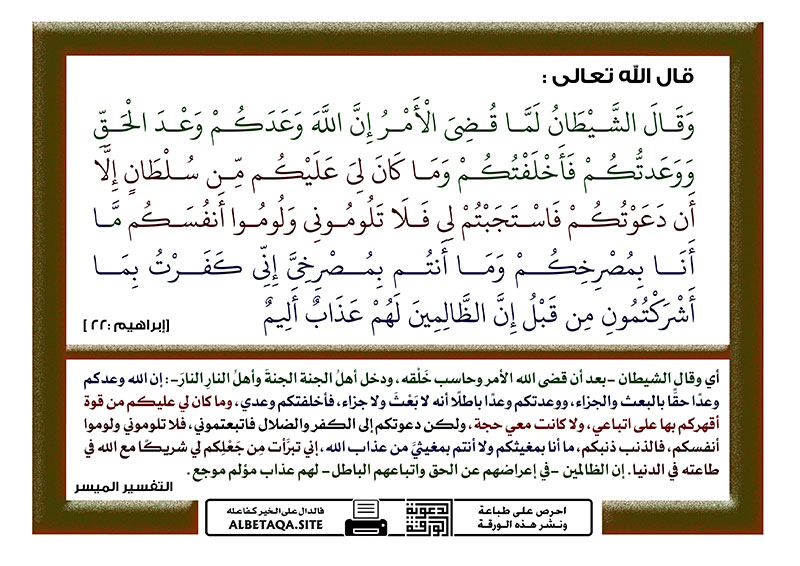 قال الله تعالى :
وَقَالَ الشَّيْطَانُ لَمَّا قُضِيَ الْأَمْرُ إِنَّ اللَّهَ وَعَدَكُمْ وَعْدَ الْحَقِّ
وَوَعَدتُّكُمْ فَأَخْلَفْتُكُمْ وَمَا كَانَ لِيَ عَلَيْكُم مِّن سُلْطَانٍ إِلَّا
أَن دَعَوْتُكُمْ فَاسْتَجَبْتُمْ لِي فَلَا تَلُومُونِي وَلُومُوا أَنفُسَكُم مَّا
أَنَا بِمُصْرِخِكُمْ وَمَا أَنتُم بِمُصْرِخِيَّ إِنِّي كَفَرْتُ بِمَا
أَشْرَكْتُمُونِ مِن قَبْلُ إِنَّ الظَّالِمِينَ لَهُمْ عَذَابٌ أَلِيمٌ
[إبراهيم :٢٢ ]
أي وقال الشيطان -بعد أن قضى الله الأمر وحاسب خَلْقه، ودخل أهلُ الجنة الجنةَ وأهلُ النارِ النارَ-: إن الله وعدكم
وعدًا حقًّا بالبعث والجزاء، ووعدتكم وعدًا باطلًا أنه لا بَعْثَ ولا جزاء، فأخلفتكم وعدي، وما كان لي عليكم من قوة
أقهركم بها على اتباعي، ولا كانت معي حجة، ولكن دعوتكم إلى الكفر والضلال فاتبعتموني، فلا تلوموني ولوموا
أنفسكم، فالذنب ذنبكم، ما أنا بمغيثكم ولا أنتم بمغيثيَّ من عذاب الله، إني تبرَّأت مِن جَعْلِكم لي شريكًا مع الله في
طاعته في الدنيا. إن الظالمين -في إعراضهم عن الحق واتباعهم الباطل- لهم عذاب مؤلم موجع.
التفسير الميسر
احرص على طباعة
ونشر هذه الورقة
الورقة
الدعوية
فالدال على الخير كفاعله
ALBETAQA.SITE